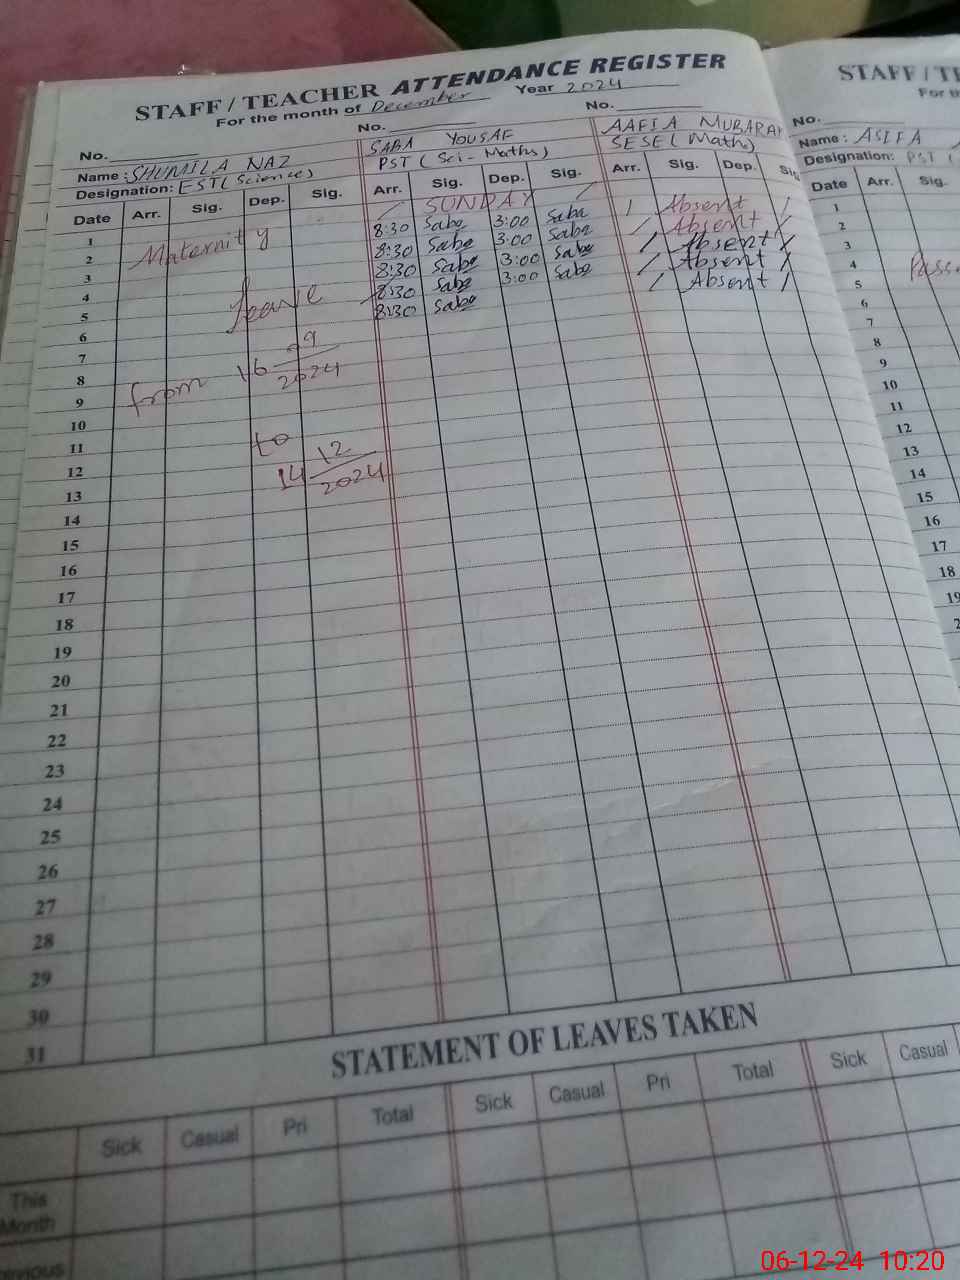 STAFF / TEACHER ATTENDANCE REGISTER
For the month of December Year 2024
No. No. No.
Name : SHUMILA NAZ SABA YOUSAF AAFIA MUBARAK
Designation: EST( Science) PST ( Sci - Maths) SESE ( Maths)
Date Arr. Sig. Dep. Sig. Arr. Sig. Dep. Sig. Arr. Sig. Dep. Sig.
1 SUNDAY
2 Maternity 8:30 Saba 3:00 Saba Absent
3 8:30 Saba 3:00 Saba Absent
4 Leave 8:30 Saba 3:00 Saba Absent
5 8:30 Saba 3:00 Saba Absent
6 8:30 Saba Absent
7
8 from 16 09/2024
9
10
11 to
12 14 12/2024
13
14
15
16
17
18
19
20
21
22
23
24
25
26
27
28
29
30
31
STATEMENT OF LEAVES TAKEN
Sick Casual Pri Total Sick Casual Pri Total Sick Casual
This
Month
STAFF / TE
For th
No.
Name : ASIFA
Designation: PST (
Date Arr. Sig.
1
2
3
4
5
6
7
8
9
10
11
12
13
14
15
16
17
18
19
06-12-24 10:20